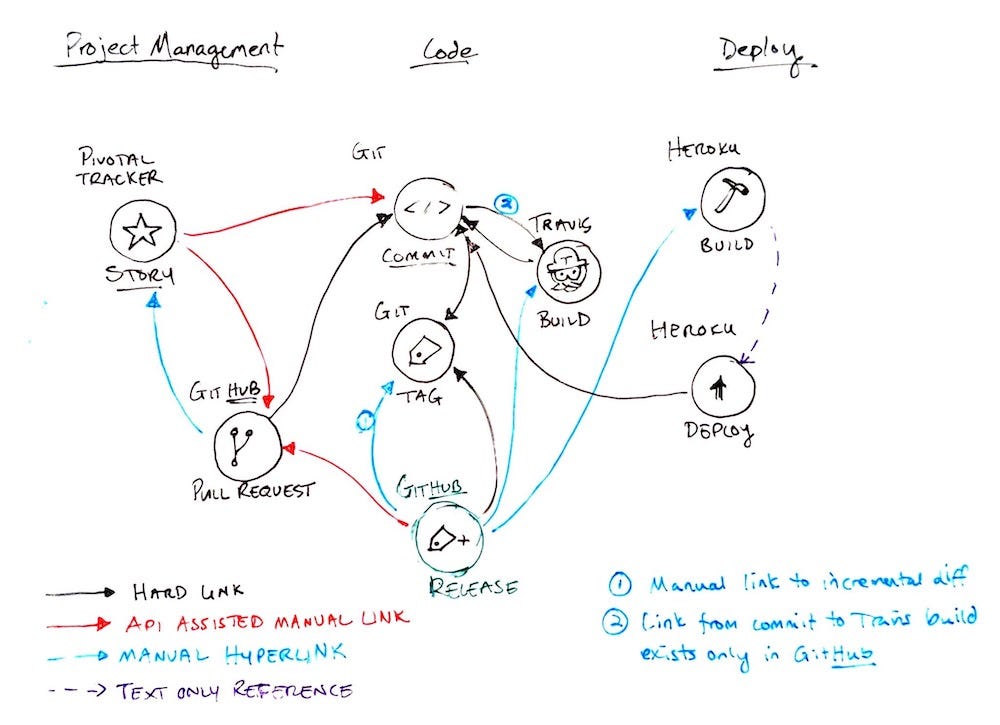 Project Management
Code
Deploy
PIVOTAL
TRACKER
STORY
GIT
</>
COMMIT
2
TRAVIS
T
BUILD
HEROKU
BUILD
HEROKU
DEPLOY
GIT
TAG
1
GITHUB
PULL REQUEST
GITHUB
+
RELEASE
HARD LINK
API ASSISTED MANUAL LINK
MANUAL HYPERLINK
TEXT ONLY REFERENCE
1 Manual link to incremental diff
2 Link from commit to Travis build
exists only in GitHub